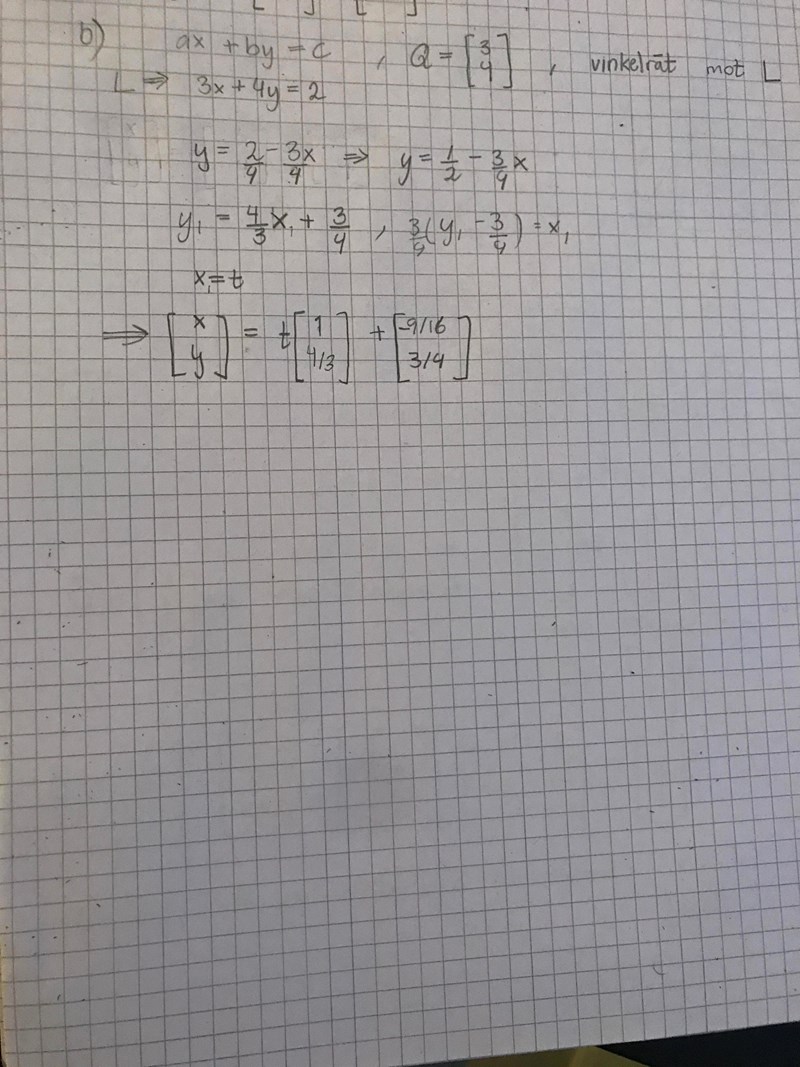 b) ax + by = c , Q = [3 4] , vinkelrät mot L
L ⇒ 3x + 4y = 2
y = 2/4 - 3x/4 ⇒ y = 1/2 - 3/4 x
y₁ = 4/3 x₁ + 3/4 , 3/4 (y₁ - 3/4) = x₁
x₁ = t
⇒ [x y] = t [1 4/3] + [-9/16 3/4]